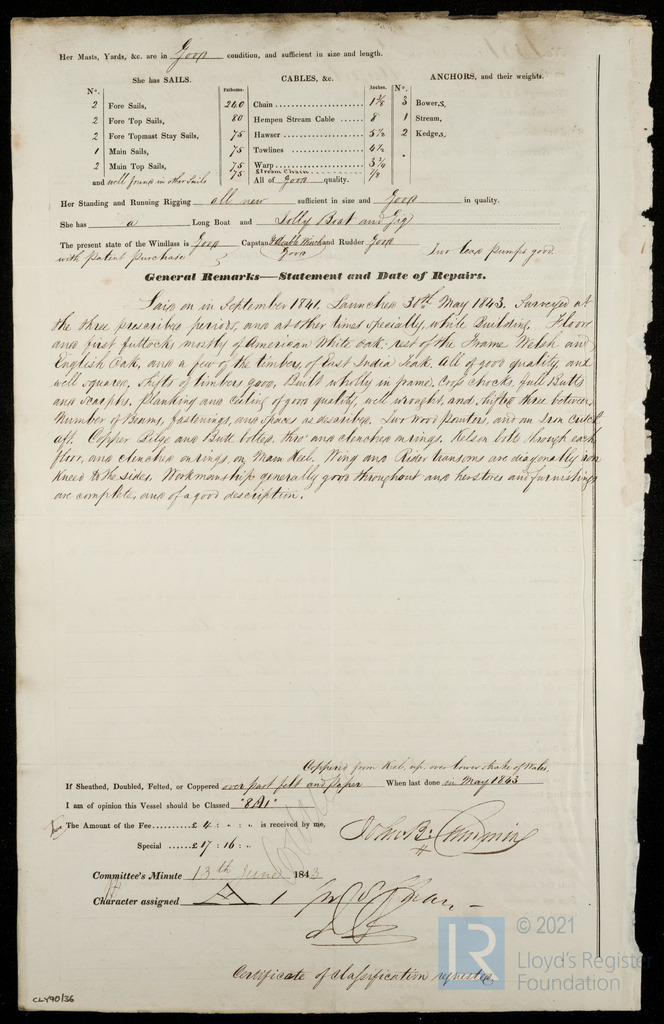 Her Masts, Yards, &c. are in Good condition, and sufficient in size and length.
She has SAILS. CABLES, &c. ANCHORS, and their weights.
N°. Fathoms. Inches. N°.
2 Fore Sails, 240 Chain 1 3/8 3 Bowers,
2 Fore Top Sails, 80 Hempen Stream Cable 8 1 Stream,
2 Fore Topmast Stay Sails, 75 Hawser 5 1/2 2 Kedges,
1 Main Sails, 75 Towlines 4 1/2
2 Main Top Sails, 75 Warp 3 1/4
75 Stream Chain 7/8
and well found in other Sails All of Good quality.
Her Standing and Running Rigging all new sufficient in size and Good in quality.
She has a Long Boat and Jolly Boat and Gig
The present state of the Windlass is Good Capstan & double Winch and Rudder Good Two lead Pumps good
with patent Purchase Good
General Remarks—Statement and Date of Repairs.
Laid on in September 1841. Launched 30th May 1843. Surveyed at
the three prescribed periods, and at other times specially, while Building. Floors
and first futtocks mostly of American White oak: rest of the Frame Welsh and
English Oak, and a few of the timbers of East India Teak. All of good quality, and
well squared, shifts of timbers good. Built wholly in frame, Crop chocks, full Butts
and Scarphs. Planking and Ceiling of good quality, well wrought, and shifted three between,
Number of Beams, fastenings, and spaces as described. Two wood pointers, and an Iron Crutch
aft. Copper Bilge and Butt bolted, thro' and clenched on rings. Kelson bolts through each
floor, and clenched on rings, on Main Keel. Wing and Rider transoms are diagonally iron
Kneed to the sides. Workmanship generally good throughout and her stores and furnishings
are complete, and of a good description.
Coppered from Keel up, over lower strake of Wales,
If Sheathed, Doubled, Felted, or Coppered over part felt and paper When last done in May 1843
I am of opinion this Vessel should be Classed "8A1"
The Amount of the Fee £ 4 : - : - is received by me,
John B. Cumming
Special £ 17 : 16 : -
Committee's Minute 13th June 1843
Character assigned A 1
Certificate of Classification requested.
CLY90/36
© 2021
LR
Lloyd's Register
Foundation